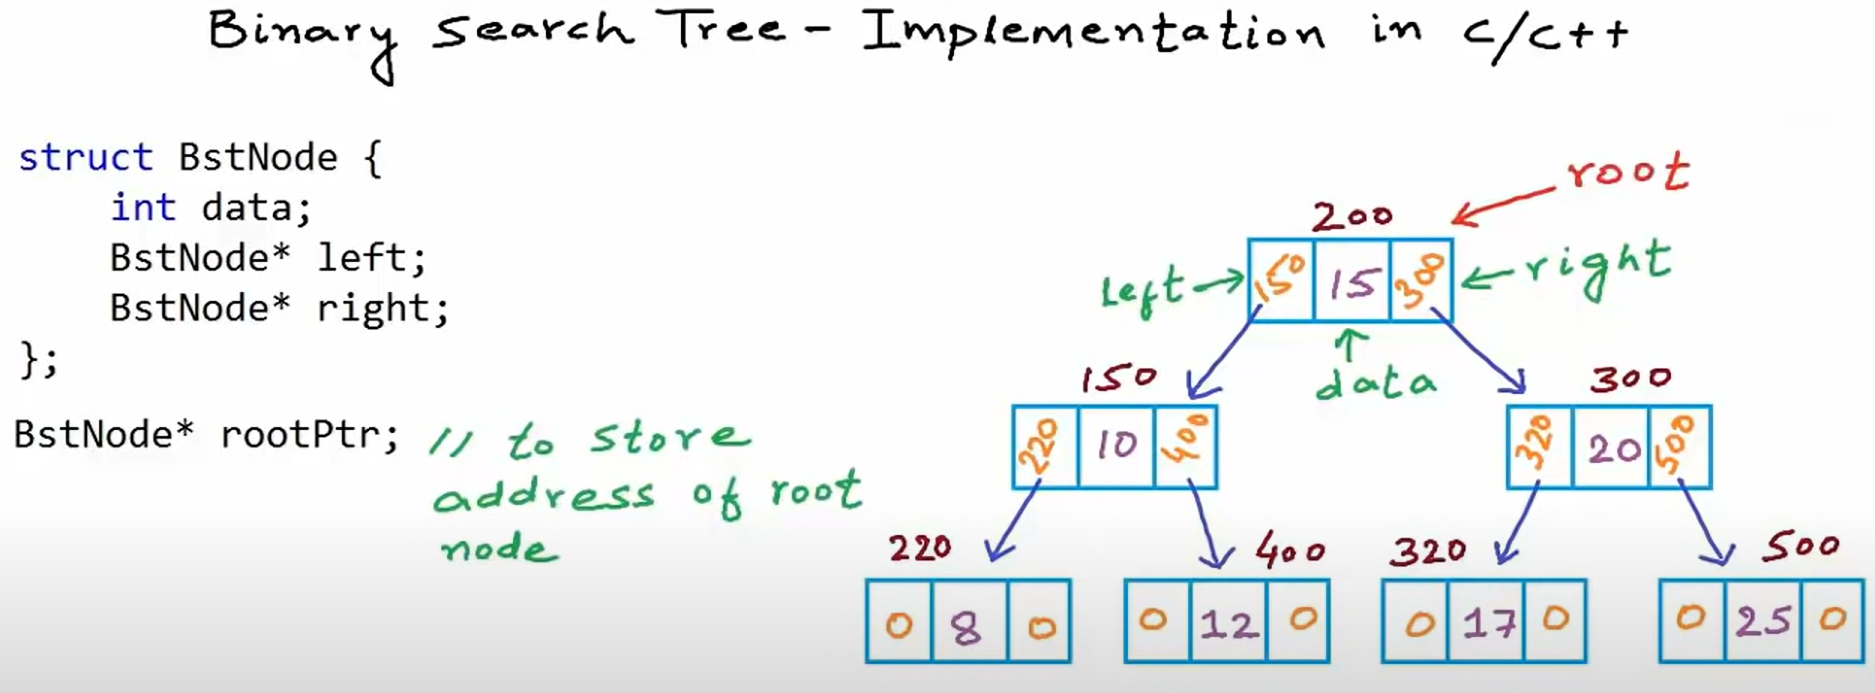 Binary Search Tree - Implementation in C/C++
struct BstNode {
int data;
BstNode* left;
BstNode* right;
};
BstNode* rootPtr; // to store
address of root
node
root
200
left
150 15 300
right
data
150
300
220 10 400
320 20 500
220
400
320
500
0 8 0
0 12 0
0 17 0
0 25 0